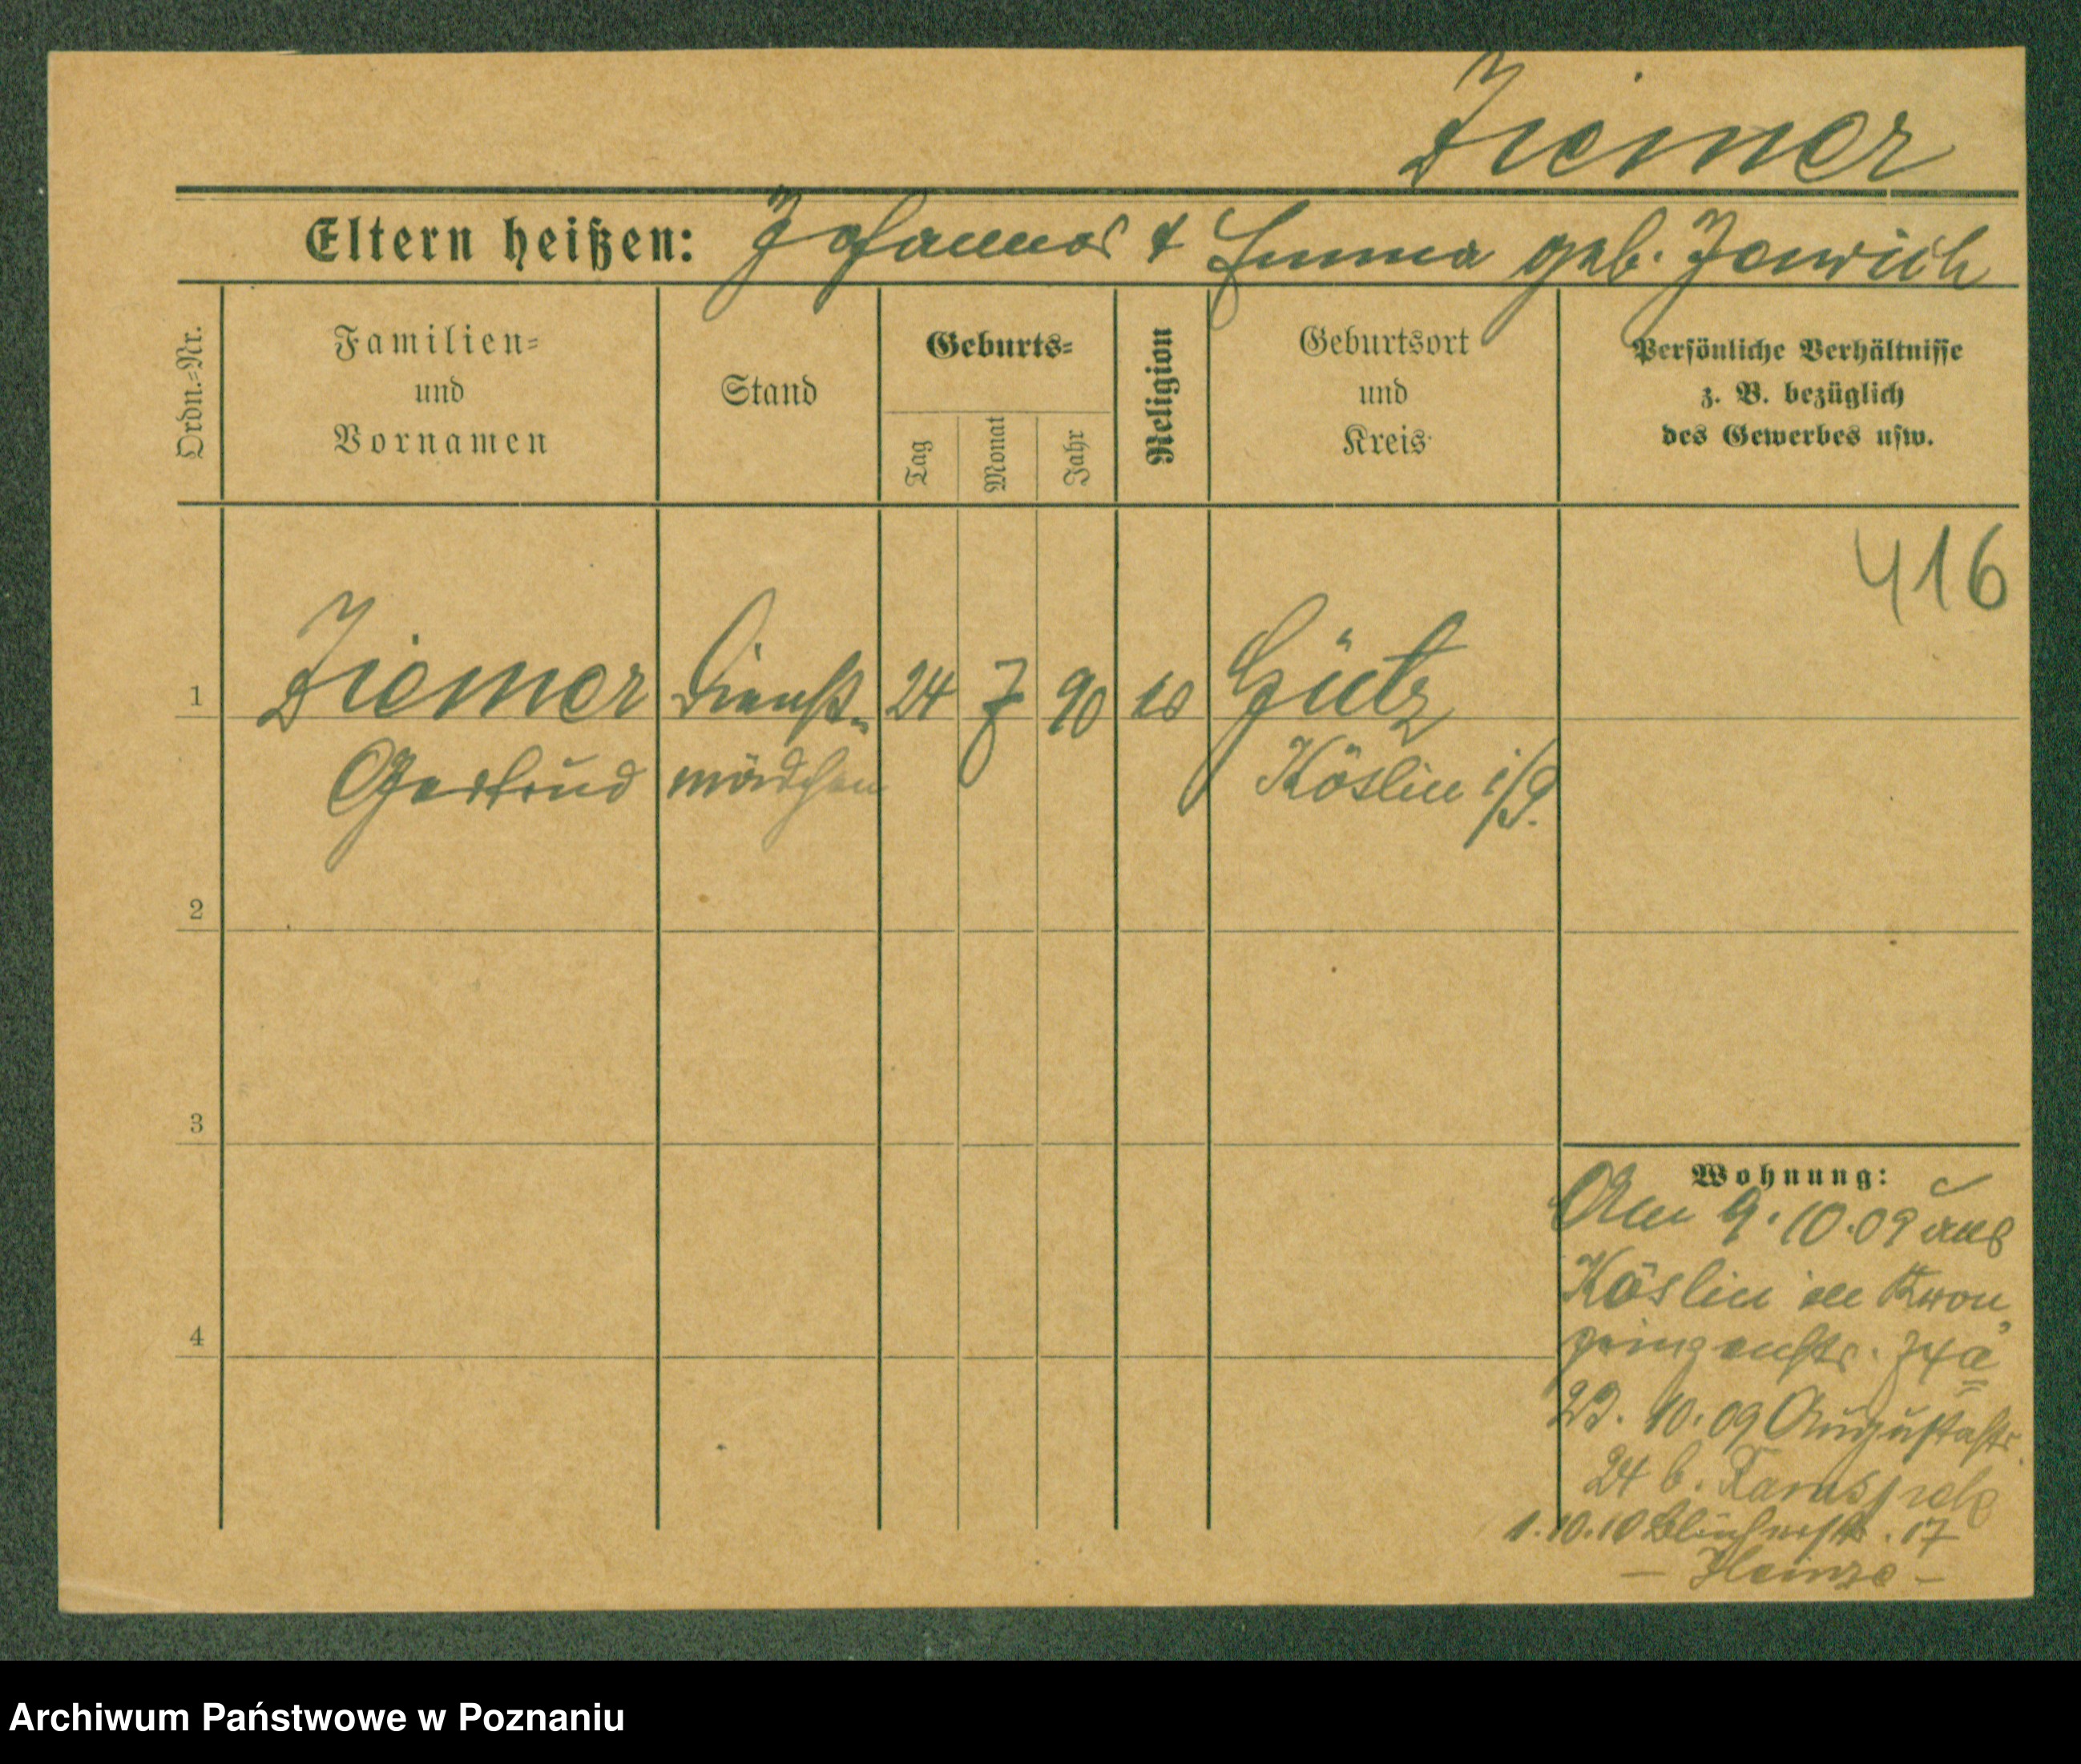 Ziemer
Eltern heißen: Johannes & Emma geb. Janwich
Ordn.=Nr.
Familien=
und
Vornamen
Stand
Geburts=
Tag
Monat
Jahr
Religion
Geburtsort
und
Kreis
Persönliche Verhältnisse
z. B. bezüglich
des Gewerbes usw.
416
1 Ziemer Dienst= 24 7 90 Gütz
Gertrud mädchen Köslin i/P.
2
3
4
Wohnung:
Am 9.10.09 aus
Köslin in Kron
prinzenstr. 74a
23. 10. 09 Augustastr.
24 b.
1.10.10 Blücherstr. 17
— Heinze —
Archiwum Państwowe w Poznaniu